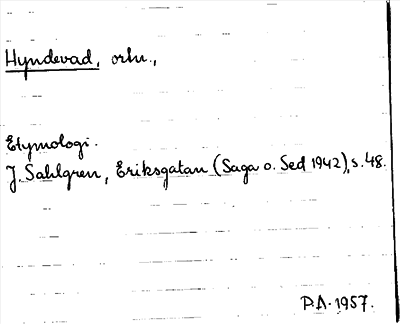 Hyndevad, ortn.,
Etymologi.
J. Sahlgren, Eriksgatan (Saga o. Sed 1942), s. 48.
P.A. 1957.